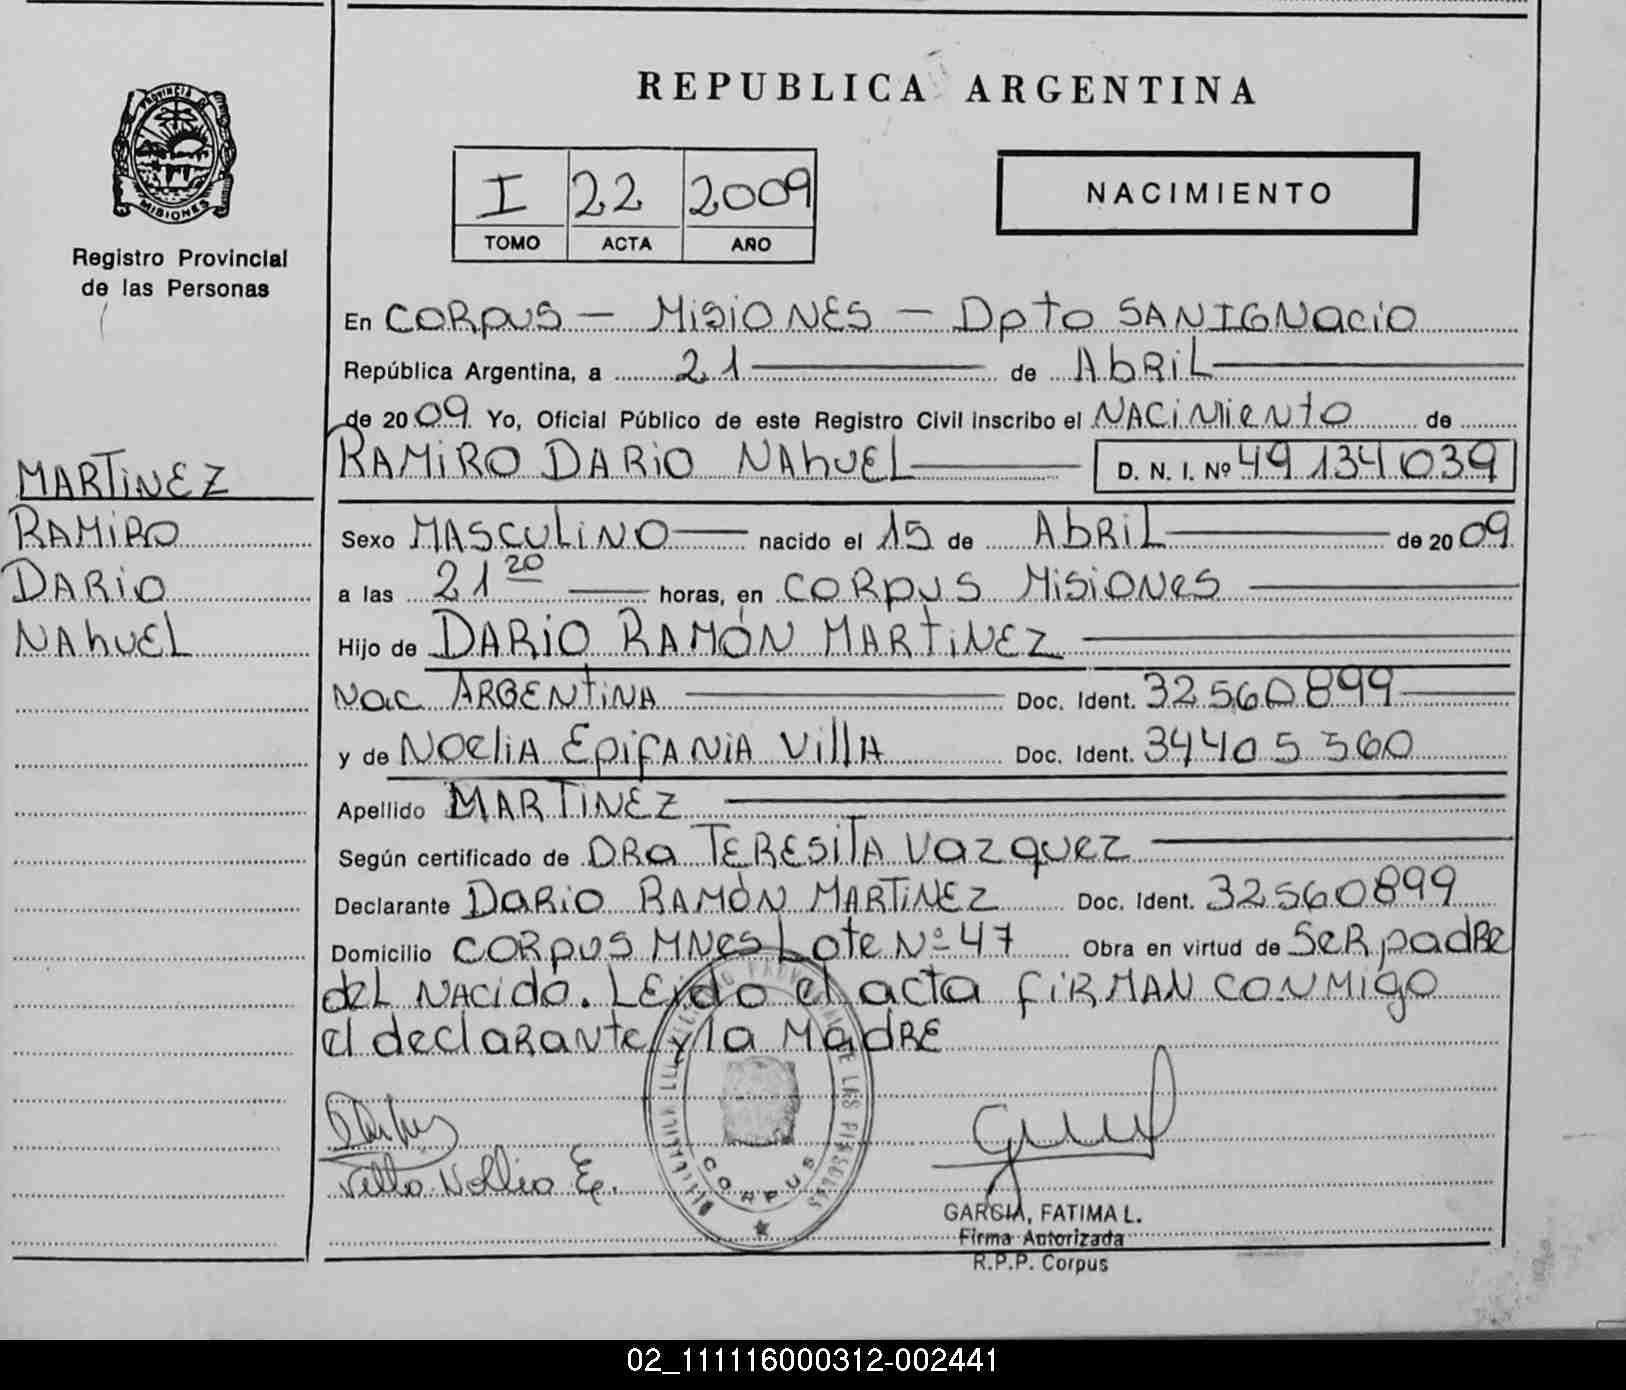 REPUBLICA ARGENTINA
PROVINCIA DE
MISIONES
Registro Provincial
de las Personas
I 22 2009
TOMO ACTA AÑO
NACIMIENTO
En CORPUS - MISIONES - Dpto SAN IGNacio
República Argentina, a 21 de AbRiL
de 2009 Yo, Oficial Público de este Registro Civil inscribo el NACiMiento de
RAMiRO DARIO NAhUEL D. N. I. Nº 49.134.039
MARTINEZ
RAMIRO
DARIO
NAhUEL
Sexo MASCULiNO nacido el 15 de AbRiL de 2009
a las 21 20 horas, en CORPUS MisiONes
Hijo de DARIO RAMÓN MARTiNEZ
Nac ARGENtiNA Doc. Ident. 32560899
y de NOeliA EpifANiA VillA Doc. Ident. 34405560
Apellido MARTINEZ
Según certificado de DRa TERESiTA Vazquez
Declarante DaRiO RAMÓN MARTiNEZ Doc. Ident. 32560899
Domicilio CORPUS MNes Lote Nº 47 Obra en virtud de SeR padRe
deL NACido. LEido el acta fiRMAN CONMigo
el declARANte y la MadRE
Villa Noelia E.
CORPUS
GARCIA, FATIMA L.
Firma Autorizada
R.P.P. Corpus
02_111116000312-002441